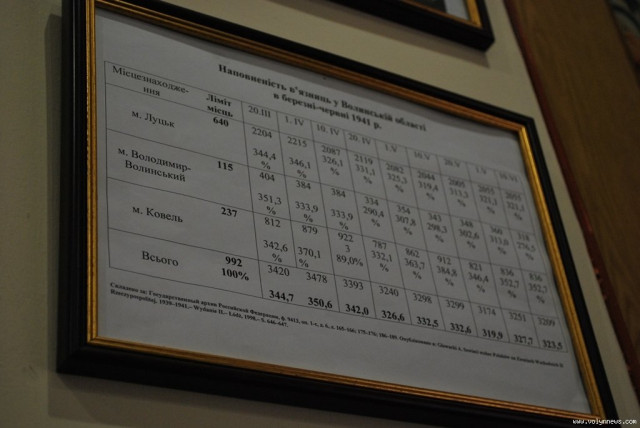 Наповненість в'язниць у Волинській області
в березні-червні 1941 р.
Місцезнаходже-ння Ліміт місць 20.III 1. IV 10. IV 20. IV 10. V 20. V
м. Луцьк 640 2204 2215 2087 2119 2082 2044 2005 2055 2055
344,4 % 346,1 % 326,1 % 331,1 % 325,3 % 319,4 % 313,3 % 321,1 % 321,1 %
м. Володимир-Волинський 115 404 384 384 334 354 343 348 360 318
351,3 % 333,9 % 333,9 % 290,4 % 307,8 % 298,3 % 302,6 % 313,0 % 276,5 %
м. Ковель 237 812 879 922 787 862 912 821 836 836
342,6 % 370,1 % 3 89,0% 332,1 % 363,7 % 384,8 % 346,4 % 352,7 % 352,7 %
Всього 992 100% 3420 3478 3393 3240 3298 3299 3174 3251 3209
344,7 350,6 342,0 326,6 332,5 332,6 319,9 327,7 323,5
Складено за: Государственный архив Российской Федерации, ф. 9413, оп. 1-с,
Rzeczypospolitej, 1939-1941.– Wydanie II.– Łódź, 1998.– S. 646-647.
www.volynnews.com